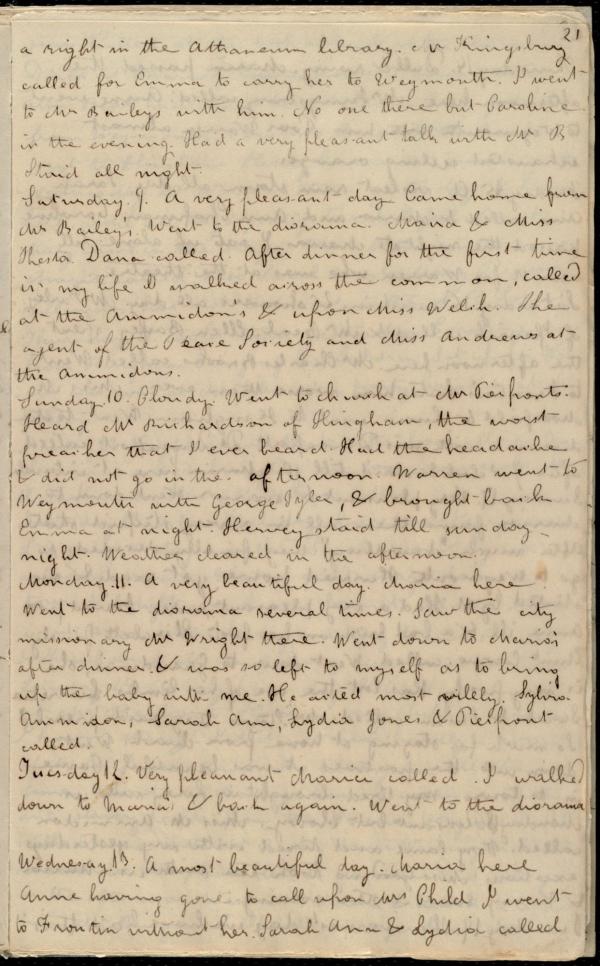 21
a right in the Athaneum library. Mr Kingsbury
called for Emma to carry her to Weymouth. I went
to Mr Baileys with him. No one there but Caroline
in the evening. Had a very pleasant talk with Mr B
Staid all night.
Saturday 9. A very pleasant day Came home from
Mr Bailey's. Went to the diorama. Maria & Miss
Hesta Dana called. After dinner for the first time
in my life I walked across the common, called
at the Ammidon's & upon Miss Welsh. The
agent of the Peace Society and Miss Andrews at
the Ammidons.
Sunday 10. Cloudy. Went to church at Mr Pierponts.
Heard Mr Richardson of Hingham, the worst
preacher that I ever heard. Had the headache
& did not go in the afternoon. Warren went to
Weymouth with George Tyler, & brought back
Emma at night. Hervey staid till sunday-
night. Weather cleared in the afternoon.
Monday. 11. A very beautiful day. Maria here
Went to the diorama several times. Saw the city
missionary Mr Wright there. Went down to Maria's
after dinner. & was so left to myself as to bring
up the baby with me. He acted most vilely. Sylvia
Ammidon, Sarah Ann, Lydia Jones & Pierpont
called.
Tuesday 12. Very pleasant Maria called. I walked
down to Maria's & back again. Went to the diorama
Wednesday. 13. A most beautiful day. Maria here
Anne having gone to call upon Mrs Child I went
to Frontin without her. Sarah Ann & Lydia called